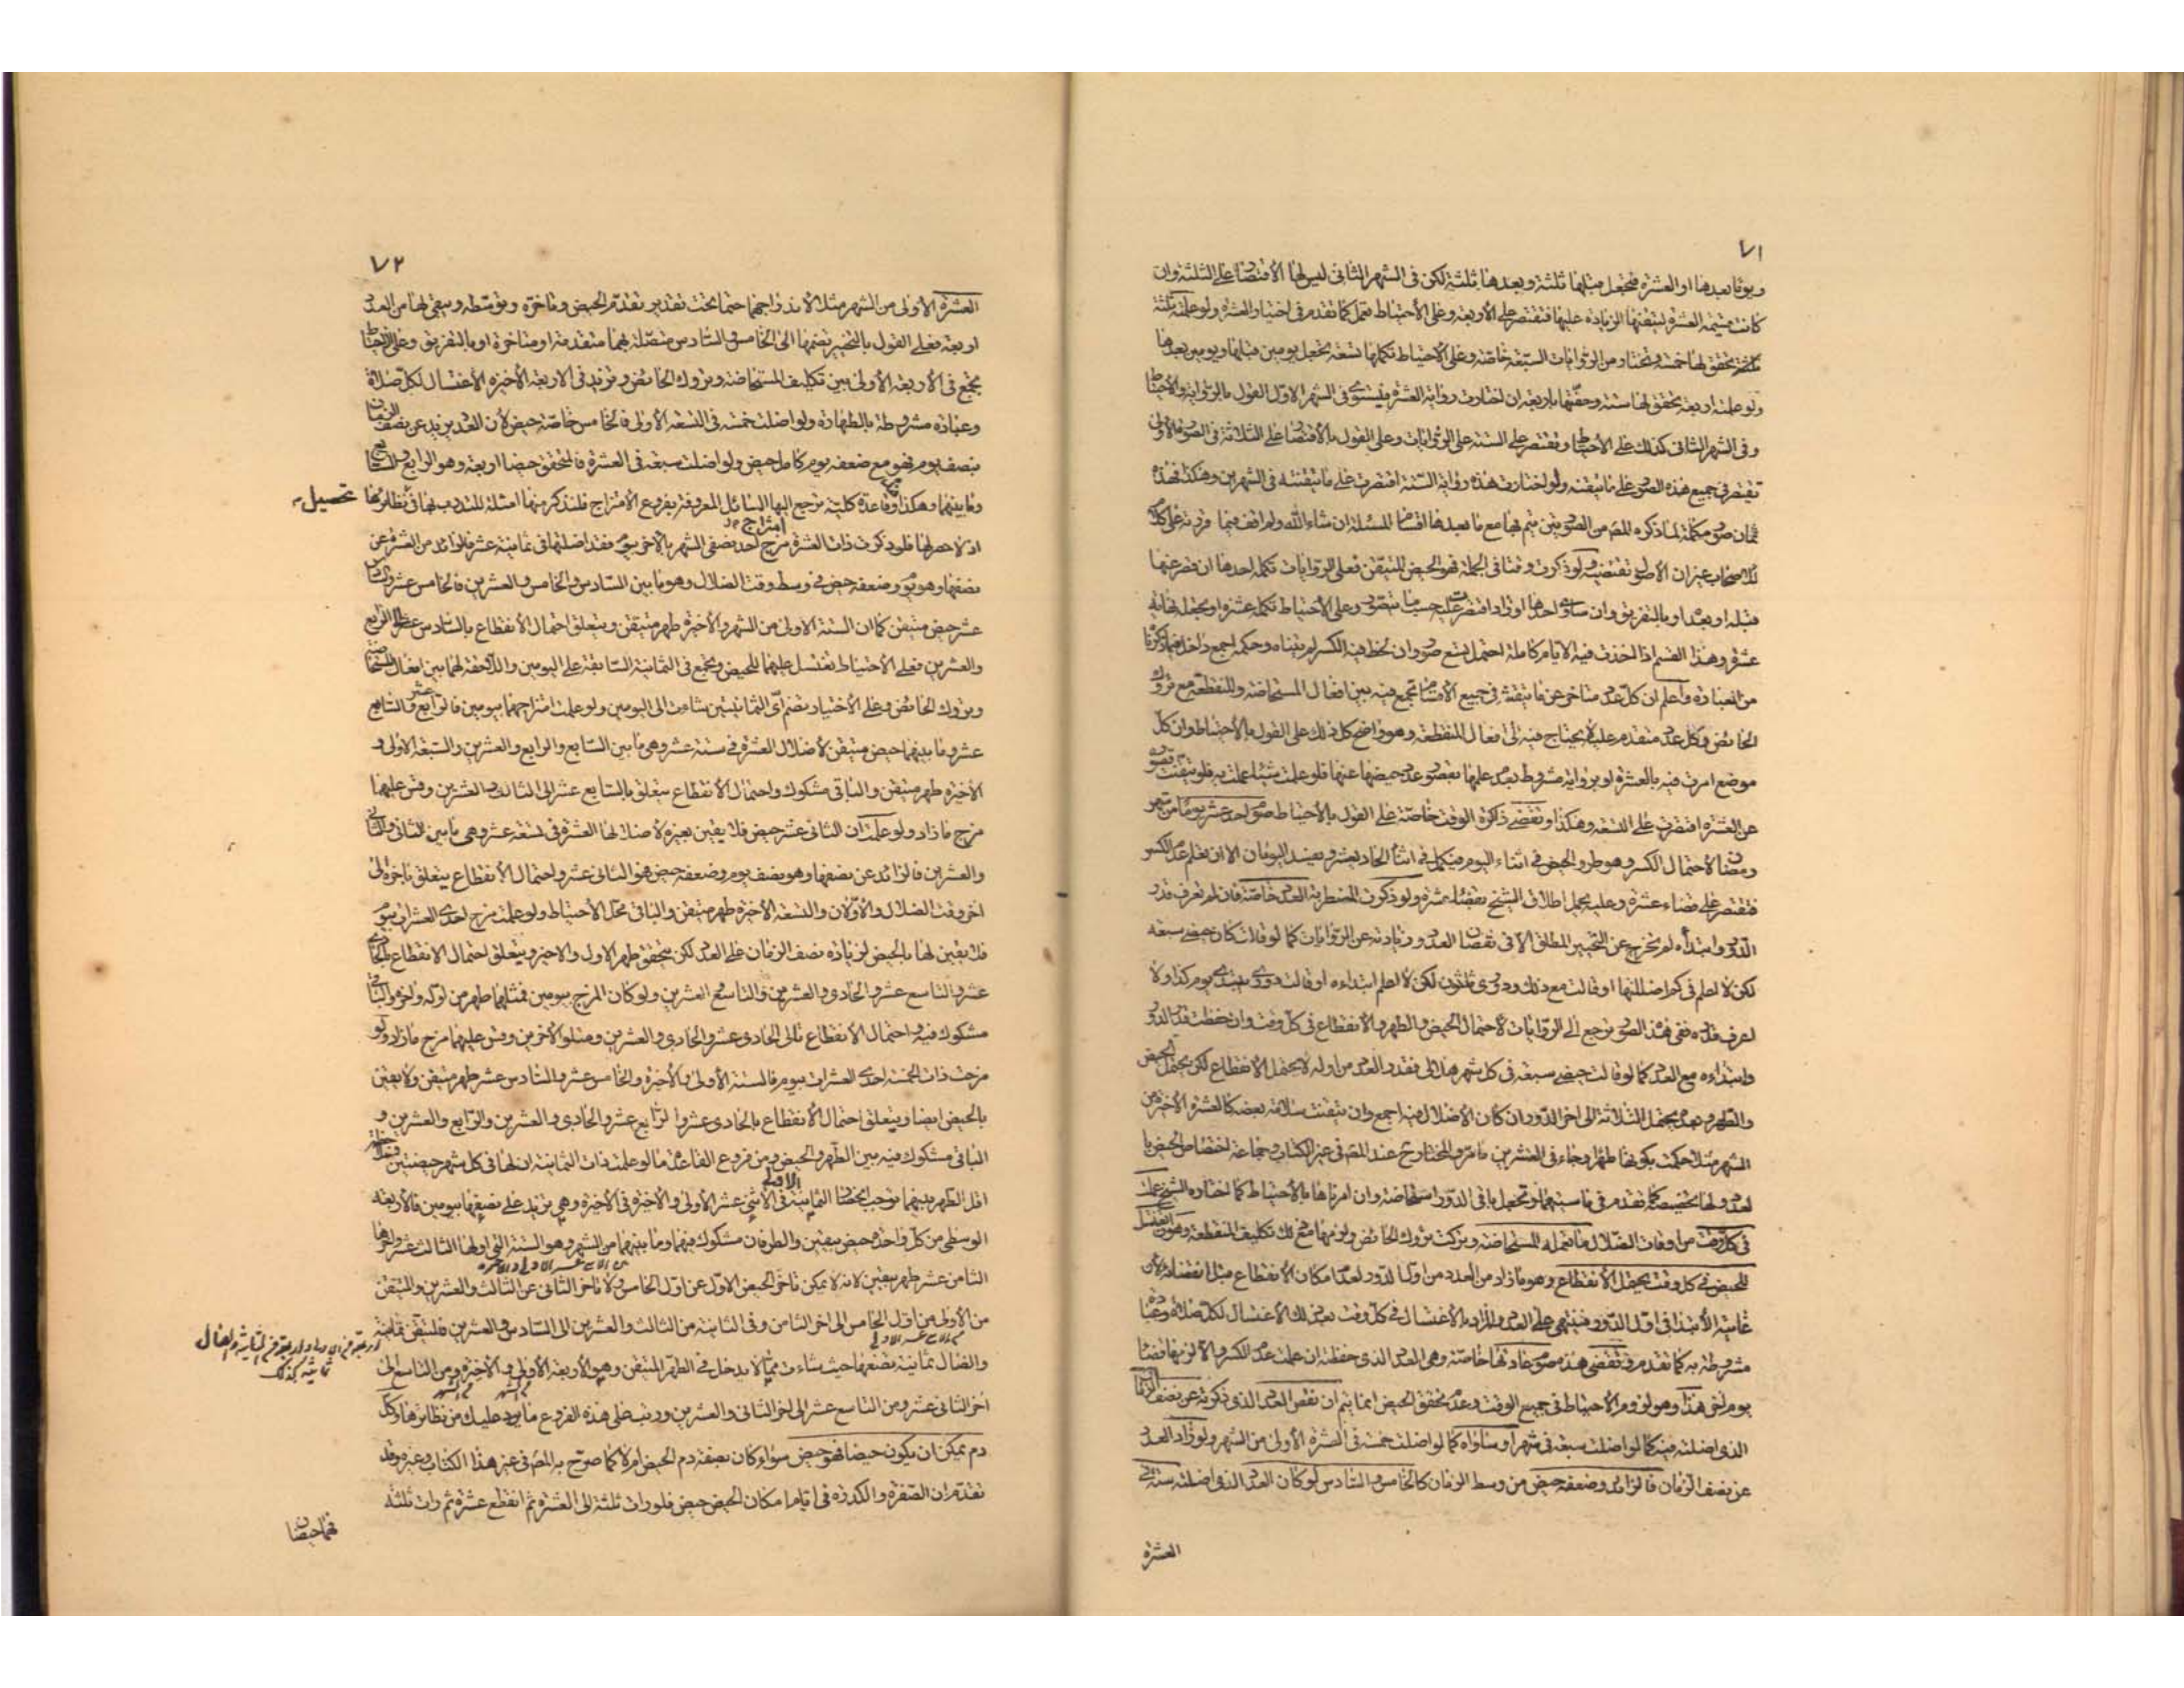 ٧١
ويوما بعدها او العشرة فتجعل قبلها ثلثة وبعدها ثلثة لكن فى الشهر الثانى ليس لها الاقتصار على الثلثة وان
كانت متممة العشرة لتيقنها الزيادة عليها فتقتصر على الأربعة وعلى الأحتياط تعمل كما تقدم فى اختيار العشرة ولو علمت ثلثة
تحقق لها خمسة وتختار من الروايات السبعة خاصة وعلى الأحتياط تكملها تسعة بجعل يومين قبلها ويومين بعدها
ولو علمت اربعة تحقق لها ستة وحفّتها باربعة ان اختارت رواية العشرة فيستوى فى الشهر الاول القول بالرواية والأحتياط
وفى الشهر الثانى كذلك على الأحتياط وتقتصر على الستة على الروايات وعلى القول بالأقتصار على الثلاثة فى الصورة الأولى
تقتصر فى جميع هذه الصور على ما تيقنته ولو اختارت هذه رواية الستة اقتصرت على ما تيقنته فى الشهرين وهكذا فهذه
ثمان صور مكملة لما ذكره المص من الصورتين يتم بها مع ما بعدها اقسام المسئلة ان شاء الله ولم اقف فيما
للاصحاب غير ان الأصول تقتضيه ولو ذكرت وقتا فى الجملة فهو الحيض المتيقن فعلى الروايات تكمله احدها ان قصر عنها
قبله او بعده او بالتفريق وان ساوى احدها اوزاد اقتصرت عليه حسب ما يتصور وعلى الأحتياط تكمله عشرة او تجعله نهاية
عشرة وهذا القسم اذا اخذت فيه الايام كاملة احتمل تسع صور وان لحظ فيه الكسر لم يتناه وحكمه اجمع داخل فيما ذكرنا
من العبارة واعلم ان كل عدد متاخر عن ما تيقنته فى جميع الأقسام تجمع فيه بين افعال المستحاضة والمنقطعة مع تروك
الحائض وكل عدد متقدم عليه لا يحتاج فيه الى افعال المنقطعة وهو واضح كل ذلك على القول بالأحتياط وان كل
موضع امرت فيه بالعشرة او برواية مشروط بعدم علمها بقصور عدد حيضها عنها فلو علمت شيئا عملت به فلو تيقنت قصوره
عن العشرة اقتصرت على التسعة وهكذا وتقضى ذاكرة الوقت خاصة على القول بالأحتياط صوم احد عشر يوما من شهر
رمضان لأحتمال الكسر وهو طرو الحيض فى اثناء اليوم فيكمل فى اثناء الحادى عشر ويفسد اليومان الا ان تعلم عدم الكسر
فتقتصر على قضاء عشرة وعليه يحمل اطلاق الشيخ بقضاء عشرة ولو ذكرت المضطربة العدد خاصة فان لم تعرف قدر
الدور وابتداءه لم تخرج عن التخيير المطلق الا فى نقصان العدد وزيادته عن الروايات كما لو قالت كان حيضى سبعة
لكن لا اعلم فى كم اضللتها او قالت مع ذلك ودورى ثلثون لكن لا اعلم ابتداءه او قالت دورى يبتدى يوم كذا ولا
اعرف قدره ففى هذه الصور ترجع الى الروايات لأحتمال الحيض والطهر والانقطاع فى كل وقت وان حفظت قدر الدور
وابتداءه مع العدد كما لو قالت حيضى سبعة فى كل شهر هلالى فقدر العدد من اوله لا يحتمل الانقطاع لكن يحتمل الحيض
والطهر وبعده يحتمل الثلاثة الى اخر الدور ان كان الأضلال فيه اجمع وان تيقنت سلامة بعضه كالعشرة الأخيرة من
الشهر مثلا حكمت بكونها طهرا وجاء فى العشرين ما مر والمختار ح عند المص فى غير الكتاب وجماعة اختصاص الحيض با
لعدد ولها تخصيصه كما تقدم فى ما سبقها وتجعل باقى الدور استحاضة وان امرناها بالأحتياط كما اختاره الشيخ عملت
فى كل وقت من اوقات الضلال ما تعمله المستحاضة وتركت تروك الحائض ولزمها مع ذلك تكليف المنقطعة وهو الغسل
للحيض فى كل وقت يحتمل الأنقطاع وهو ما زاد من العدد من اول الدور لعدم امكان الأنقطاع قبل انقضائه لأن
غايته الأبتدا فى اول الدور فينتهى على العدد والمراد بالأغتسال فى كل وقت يعرض لك الأغتسال لكل صلوة وعبادة
مشروطة به كما تقدم وتقضى هذه صوم عادتها خاصة وهى العدد الذى حفظته ان علمت عدم الكسر والا لزمها قضاء
يوم اخر هذا وهو لزوم الأحتياط فى جميع الوقت وعدم تحقق الحيض انما يتم ان نقص العدد الذى ذكرته عن نصف الزمان
الذى اضلته فيه كما لو اضلت سبعة فى شهر او ساواه كما لو اضلت خمسة فى العشرة الأولى من الشهر ولو زاد العدد
عن نصف الزمان فالزائد وضعفه حيض من وسط الزمان كالخامس والسادس لو كان العدد الذى اضلته ستة فى
العشرة
٧٢
العشرة الأولى من الشهر مثلا لأندراجهما حتما تحت تقدير تقدم الحيض وتاخره وتوسطه ويبقى لها من العدد
اربعة فعلى القول بالتخيير تضمها الى الخامس والسادس متصلة بهما متقدمة او متاخرة او بالتفريق وعلى الأحتياط
تجمع فى الأربعة الأولى بين تكليف المستحاضة وتروك الحائض وتزيد فى الأربعة الأخيرة الأغتسال لكل صلاة
وعبادة مشروطة بالطهارة ولو اضلت خمسة فى التسعة الأولى فالخامس خاصة حيض لأن العدد يزيد عن نصف الزمان
بنصف يوم فهو مع ضعفه يوم كامل حيض ولو اضلت سبعة فى العشرة فالمتحقق حيضا اربعة وهو الرابع والسابع
وما بينهما وهكذا وهذه قاعدة كلية ترجع اليها المسائل المعروفة بفروع الأمتزاج فلنذكر منها امثلة للتدرب بها فى نظائرها تحصيل
اذ لا حصر لها فلو ذكرت ذات العشرة مزج امتزاج احد نصفى الشهر بالآخر بيوم فقد اضلتها فى ثمانية عشر فالزائد من العشرة عن
نصفها وهو يوم وضعفه حيض فى وسط وقت الضلال وهو ما بين السادس والخامس والعشرين فالخامس عشر والسادس
عشر حيض متيقن كما ان الستة الاولى من الشهر والأخيرة طهر متيقن ويتعلق احتمال الأنقطاع بالسادس عشر الى الرابع
والعشرين فعلى الأحتياط تغتسل عليهما للحيض وتجمع فى الثمانية السابقة على اليومين واللاحقة لهما بين افعال المستحاضة
وتروك الحائض وعلى الأختيار تضم اى الثمانيتين شاءت الى اليومين ولو علمت امتزاجهما بيومين فالرابع عشر والسابع
عشر وما بينهما حيض متيقن لأضلال العشرة فى ستة عشر وهى ما بين السابع والرابع والعشرين والسبعة الأولى و
الأخيرة طهر متيقن والباقى مشكوك واحتمال الأنقطاع يتعلق بالسابع عشر الى الثالث والعشرين وقس عليهما
مزج ما زاد ولو علمت ان الثانى عشر حيض فلا يقين بغيره لأضلالها العشرة فى تسعة عشر وهى ما بين الثانى والثانى
والعشرين فالزائد عن نصفها وهو نصف يوم وضعفه حيض هو الثانى عشر واحتمال الأنقطاع يتعلق باخره الى
اخر وقت الضلال والأولان والتسعة الأخيرة طهر متيقن والباقى محل الأحتياط ولو علمت مزج احدى العشرات بيوم
فلا يقين لها بالحيض لزيادة نصف الزمان على العدد لكن يتحقق طهر الاول والاخير ويتعلق احتمال الأنقطاع بالحادى
عشر والتاسع عشر والحادى والعشرين والتاسع والعشرين ولو كان المزج بيومين فمثلهما طهر من اوله واخره والباقى
مشكوك فيه واحتمال الأنقطاع تالى الحادى عشر والحادى والعشرين ومتلو الأخرين وقس عليهما مزج ما زاد ولو
مزجت ذات الخمسة احدى العشرات بيوم فالستة الأولى والأخيرة والخامس عشر والسادس عشر طهر متيقن ولا يقين
بالحيض ايضا ويتعلق احتمال الأنقطاع بالحادى عشر والرابع عشر والحادى والعشرين والرابع والعشرين و
الباقى مشكوك فيه بين الطهر والحيض ومن فروع القاعدة ما لو علمت ذات الثمانية ان لها فى كل شهر حيضتين فهذا
اقل الطهر بينهما يوجب انحصار الثمانية الأولى فى الأثنى عشر الأولى والأخيرة فى الأخيرة وهى تزيد على نصفها بيومين فالأربعة
الوسطى من كل واحدة حيض بيقين والطرفان مشكوك فيهما وما بينهما من الشهر وهو الستة التى اولها الثالث عشر واخرها
الثامن عشر طهر بيقين لأنه لا يمكن تاخر الحيض الاول عن اول الخامس ولا تاخر الثانى عن الثالث والعشرين والمتيقن
من الأولى من اول الخامس الى اخر الثامن وفى الثانية من الثالث والعشرين الى السادس والعشرين فالمتيقن ثمانية
والضال ثمانية تضعها حيث شاءت مما لا يدخل فى الطهر المتيقن وهو الأربعة الأولى والأخيرة ومن التاسع الى
اخر الثانى عشر ومن التاسع عشر الى اخر الثانى والعشرين ورتب على هذه الفروع ما يرد عليك من نظائرها وكل
دم يمكن ان يكون حيضا فهو حيض سواء كان بصفة دم الحيض ام لا كما صرح به المص فى غير هذا الكتاب وغيره وقد
تقدم ان الصفرة والكدرة فى ايام امكان الحيض حيض فلو رات ثلثة الى العشرة ثم انقطع عشرة ثم رات ثلثة
فهما حيضان